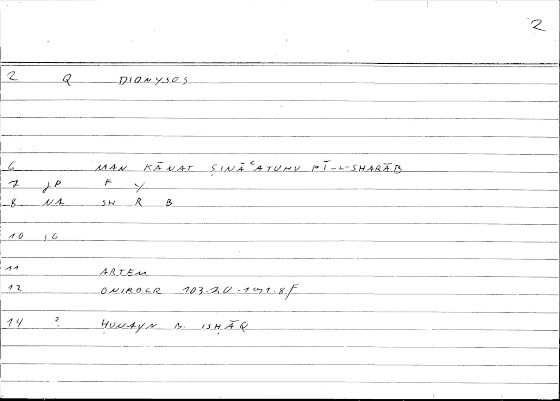 2
2 Q DIONYSOS
6 MAN KĀNAT ṢINĀʿATUHU FĪ-L-SHARĀB
7 JP F Y
8 NA SH R B
10 SG
11 ARTEM
12 ONIROCR 103.20-191.8f
14 ? ḤUNAYN B. ISḤĀQ